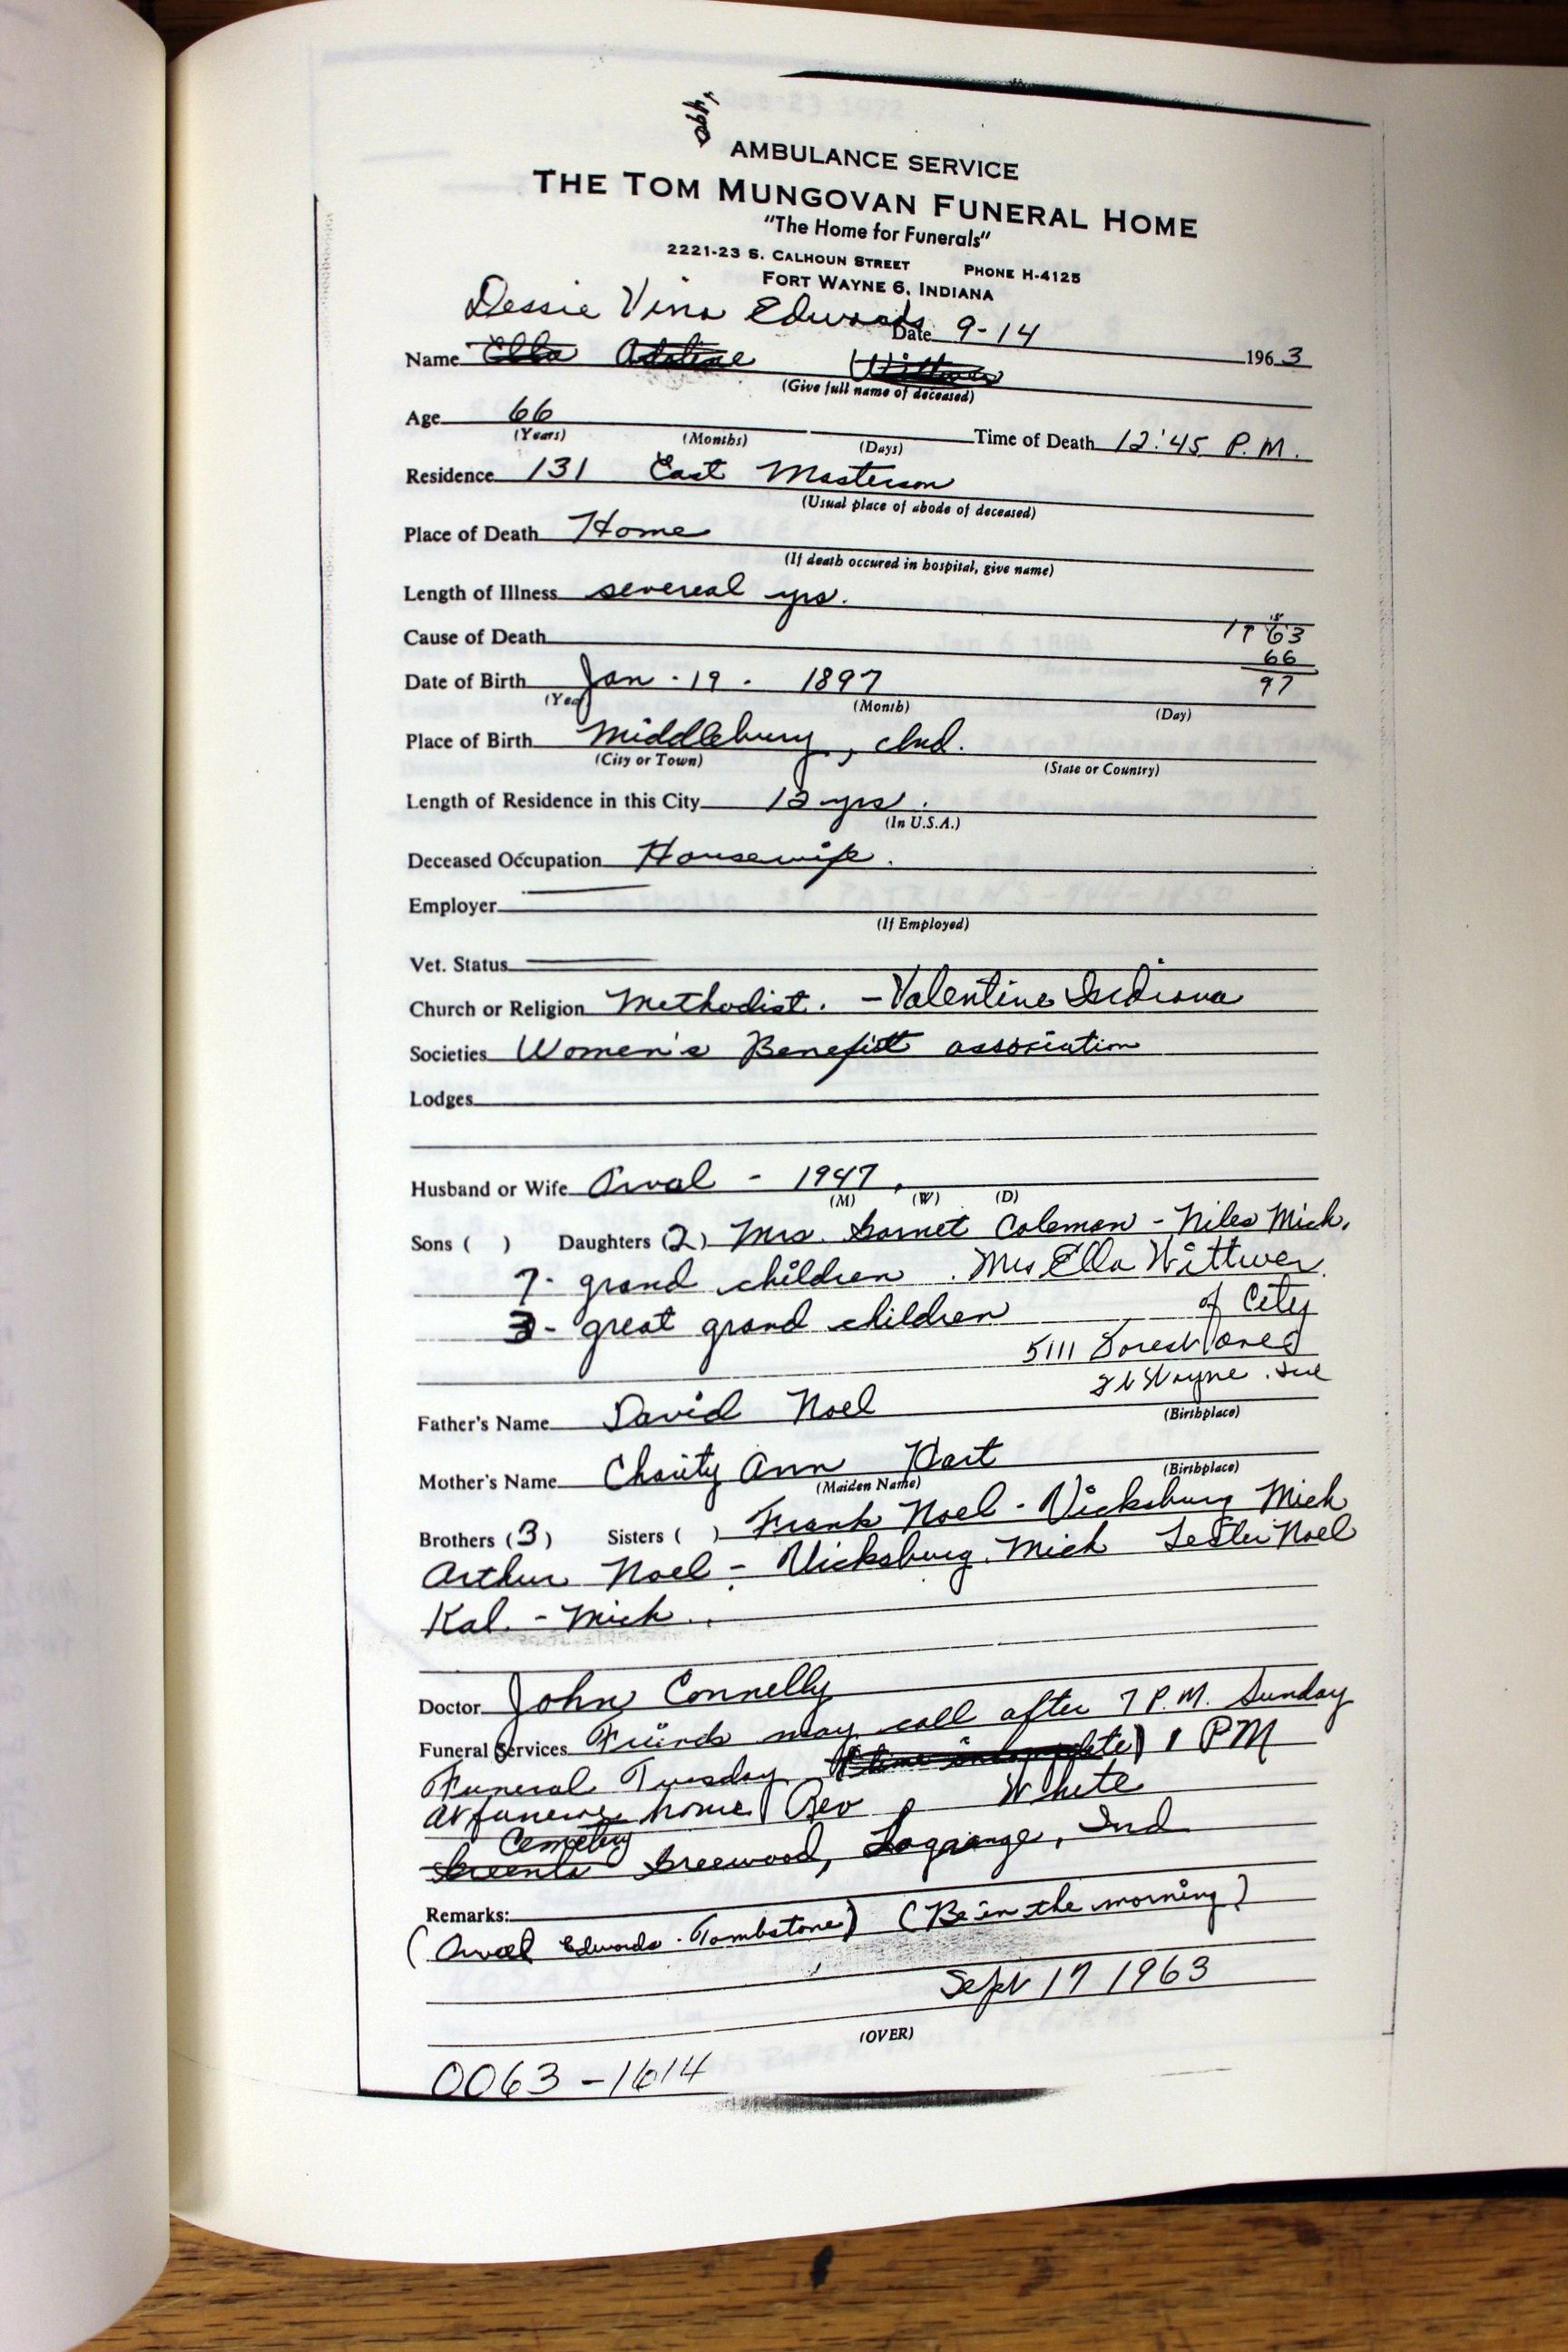 AMBULANCE SERVICE
THE TOM MUNGOVAN FUNERAL HOME
"The Home for Funerals"
2221-23 S. CALHOUN STREET PHONE H-4125
FORT WAYNE 6, INDIANA
Dessie Vina Edwards
Date 9-14 1963
Name Ella Adaline Wittwer
(Give full name of deceased)
Age 66 Time of Death 12:45 P.M.
(Years) (Months) (Days)
Residence 131 East Masterson
(Usual place of abode of deceased)
Place of Death Home
(If death occured in hospital, give name)
Length of Illness severeal yrs.
Cause of Death 1963
66
97
Date of Birth Jan. 19. 1897
(Year) (Month) (Day)
Place of Birth Middlebury, Ind.
(City or Town) (State or Country)
Length of Residence in this City 12 yrs.
(In U.S.A.)
Deceased Occupation Housewife.
Employer
(If Employed)
Vet. Status
Church or Religion Methodist. - Valentine Indiana
Societies Women's Benefit association
Lodges
Husband or Wife Orval - 1947.
(M) (W) (D)
Sons ( ) Daughters (2) Mrs. Garnet Coleman - Niles Mich.
7- grand children. Mrs Ella Wittwer
3- great grand children of City
5111
Ft Wayne. Ind
Father's Name David Noel
(Birthplace)
Mother's Name Charity Ann Hart
(Maiden Name) (Birthplace)
Brothers (3) Sisters ( ) Frank Noel - Vicksburg Mich
Arthur Noel - Vicksburg. Mich Lester Noel
Kal. - Mich.
Doctor John Connelly
Funeral Services Friends may call after 7 P.M. Sunday
Funeral Tuesday (time incomplete) 1 PM
at funeral home Rev White
Cemetery
Greenwood, Lagrange, Ind
Remarks:
(Orval Edwards. Tombstone) (Be in the morning)
Sept 17 1963
(OVER)
0063-1614